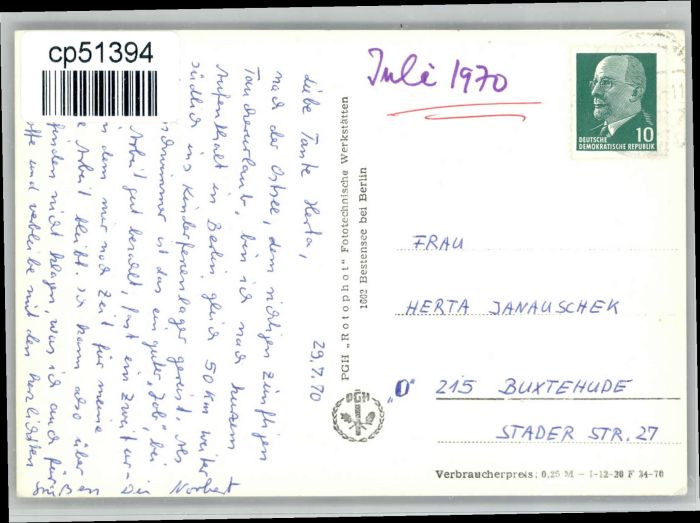 cp51394
Juli 1970
10
DEUTSCHE
DEMOKRATISCHE REPUBLIK
29.7.70
Liebe Tante Herta,
nach der Ostsee, dem richtigen zünftigen
Taucherurlaub, bin ich nach kurzem
Aufenthalt in Berlin gleich 50 Km weiter
südlich ins Kinderferienlager gereist. Als
ist das ein guter "Job", bei
Arbeit gut bezahlt, fast ein Zweitur-
dem mir noch Zeit für meine
Arbeit bleibt. Ich kann also über
nicht klagen, was ich auch für
und verbleibe mit den herzlichsten
Dein Norbert
PGH „Rotophot" Fototechnische Werkstätten
1602 Bestensee bei Berlin
PGH
FRAU
HERTA JANAUSCHEK
"O" 215 BUXTEHUDE
STADER STR. 27
Verbraucherpreis: 0,25 M – I-12-26 F 34-70